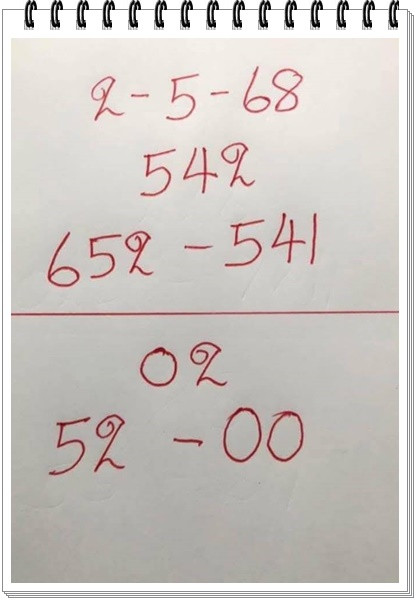 2-5-68
542
652 - 541
02
52 - 00